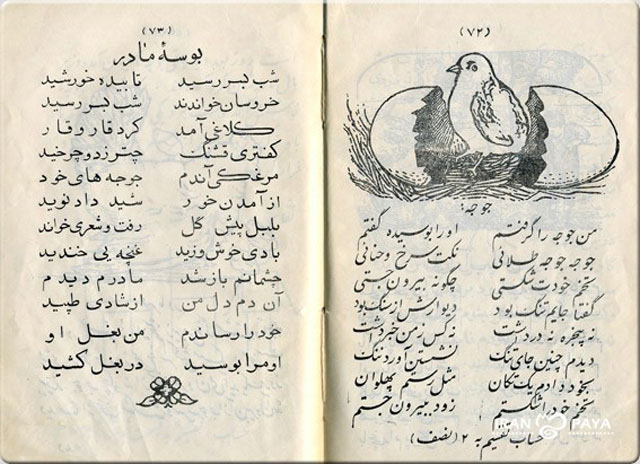 (۷۲)
جوجه:
من جوجه را گرفتم او را بوسیده گفتم
جوجه جوجه طلائی نکت سرخ و حنائی
تخم خودت شکستی چگونه بیرون جستی
گفتا جایم تنگ بود دیوارش از سنگ بود
نه پنجره نه در داشت نه کس ز من خبر داشت
دیدم چنین جای تنگ نشستن آورد ننگ
بخود دادم یک تکان مثل رستم پهلوان
تخم خود را شکستم زود بیرون جستم
حساب تقسیم به ۲ (نصف)
(۷۳)
بوسهٔ مادر
شب بسر رسید تابیده خورشید
خروسان خواندند شب بسر رسید
کلاغی آمد کرد قار و قار
کفتری قشنگ چتر زد و چرخید
مرغکی آندم جوجه های خود
از آمدن خور شید داد نوید
بلبل پیش گل رفت و شعری خواند
بادی خوش وزید غنچه یی خندید
چشمانم باز شد مادرم دیدم
آن دم دل من از شادی طپید
خود را رساندم من بغل او
او مرا بوسید در بغل کشید
IRAN PAYA